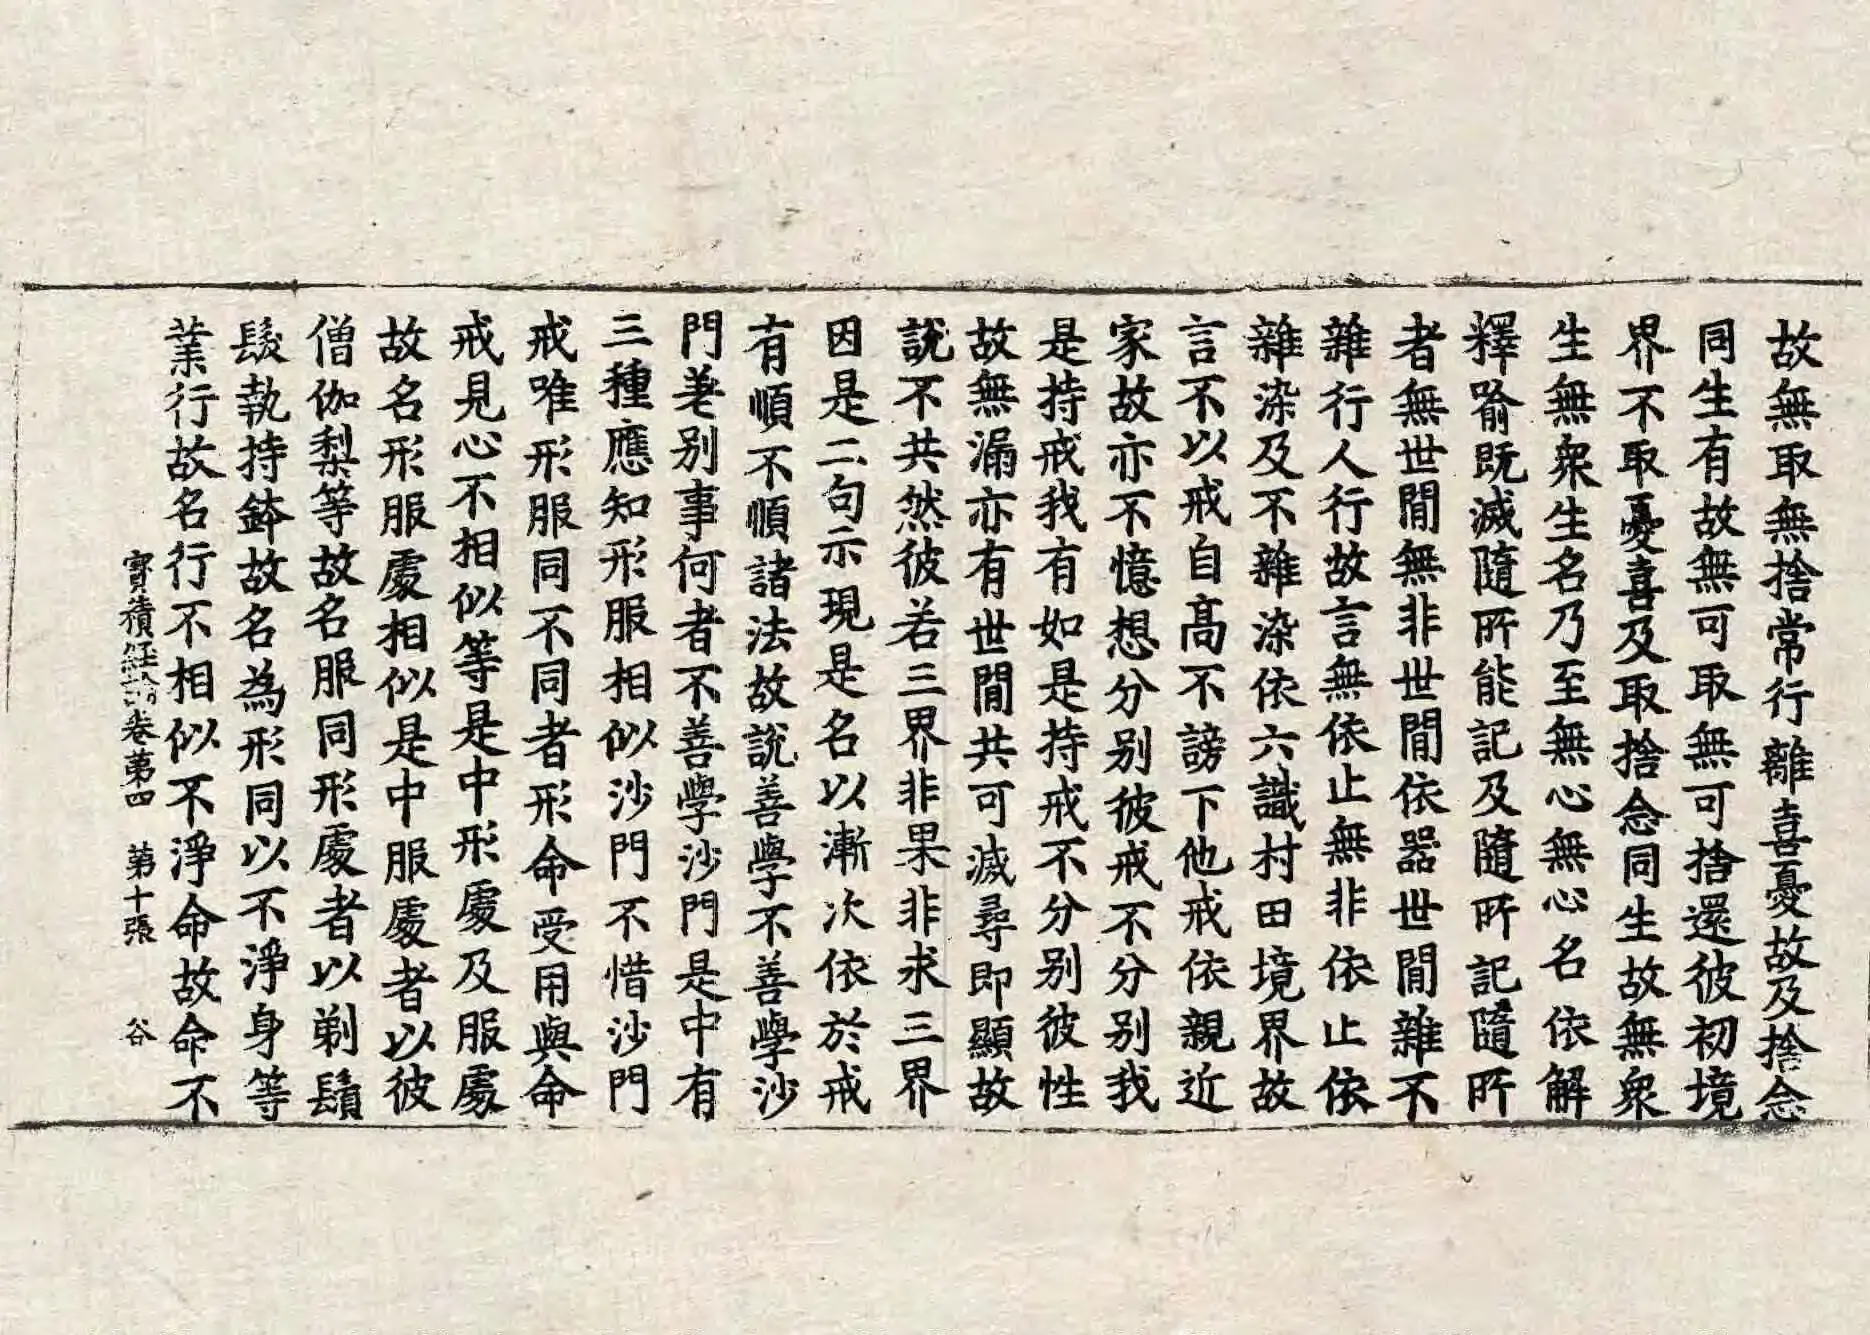 故無取無捨常行離喜憂故及捨念
同生有故無可取無可捨還彼初境
界不取憂喜及取捨念同生故無衆
生無衆生名乃至無心無心名依解
釋喻既滅隨所能記及隨所記隨所
者無世間無非世間依器世間雜不
雜行人行故言無依止無非依止依
雜染及不雜染依六識村田境界故
言不以戒自高不謗下他戒依親近
家故亦不憶想分别彼戒不分别我
是持戒我有如是持戒不分别彼性
故無漏亦有世間共可滅尋即顯故
說不共然彼若三界非果非求三界
因是二句示現是名以漸次依於戒
有順不順諸法故說善學不善學沙
門差别事何者不善學沙門是中有
三種應知形服相似沙門不惜沙門
戒唯形服同不同者形命受用與命
戒見心不相似等是中形處及服處
故名形服處相似是中服處者以彼
僧伽梨等故名服同形處者以剃鬚
髮執持鉢故名為形同以不淨身等
業行故名行不相似不淨命故命不
寶積經論卷第四 第十張 谷